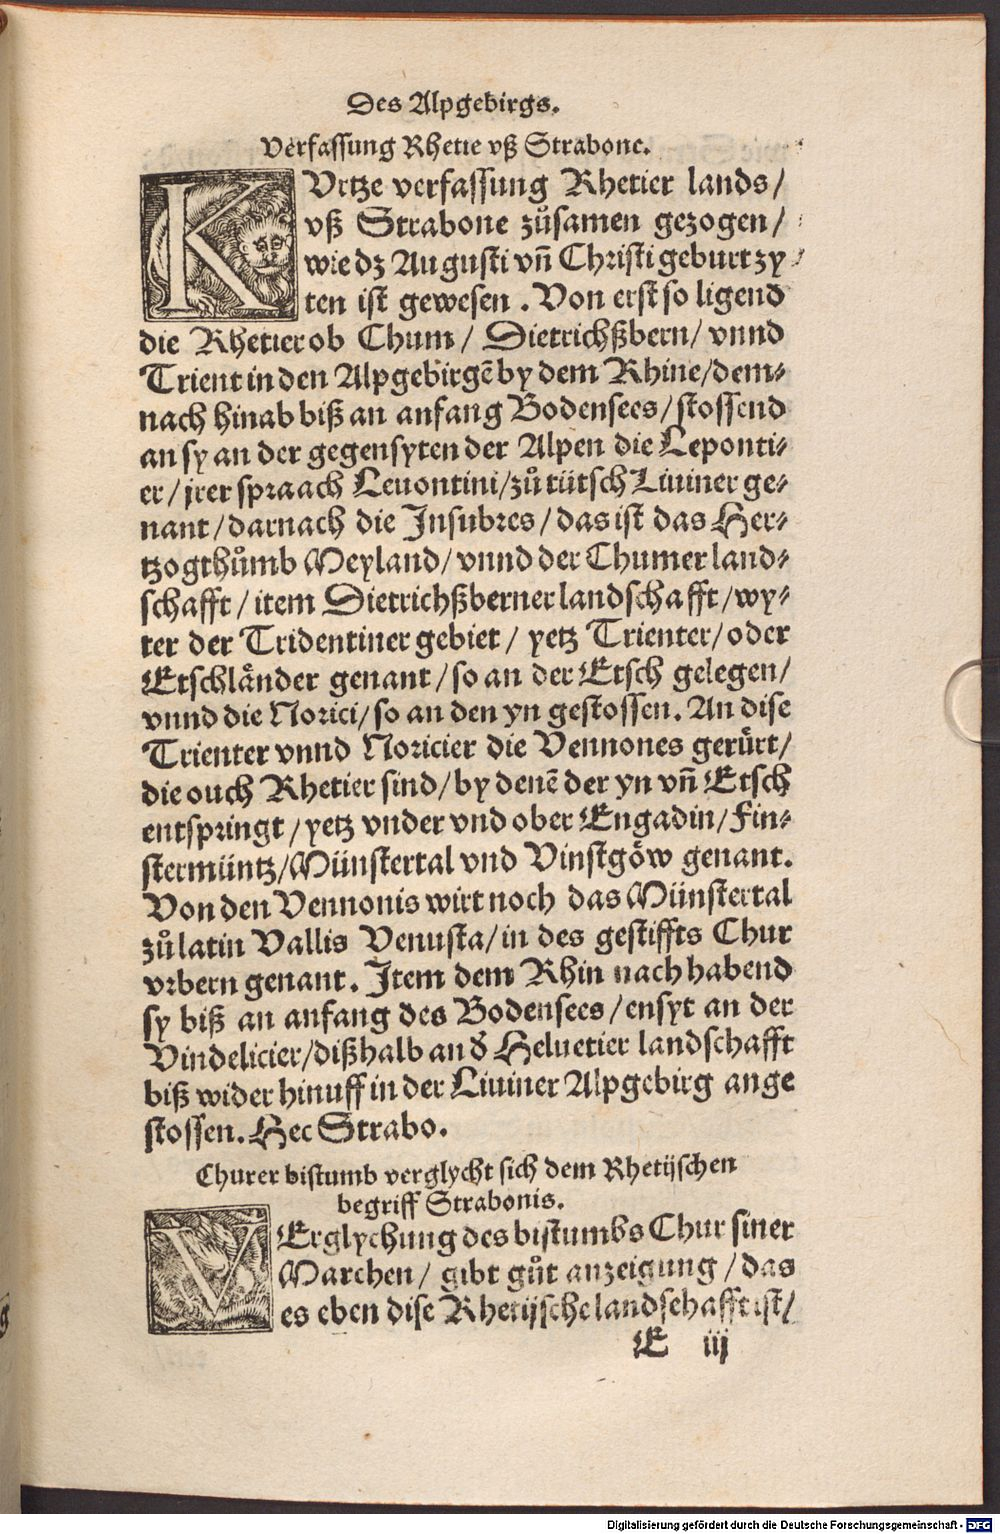 Des Alpgebirgs.
Verfassung Rhetie vß Strabone.
KVrtze verfassung Rhetier lands/
vß Strabone zůsamen gezogen/
wie dz Augusti vñ Christi geburt zy⸗
ten ist gewesen. Von erst so ligend
die Rhetier ob Chum/ Dietrichßbern/ vnnd
Trient in den Alpgebirgē by dem Rhine/dem⸗
nach hinab biß an anfang Bodensees/stossend
an sy an der gegensyten der Alpen die Leponti⸗
er/jrer spraach Leuontini/zů tütsch Liuiner ge⸗
nant/darnach die Insubres/das ist das Her⸗
tzogthůmb Meyland/vnnd der Chumer land⸗
schafft/item Dietrichßberner landschafft/wy⸗
ter der Tridentiner gebiet/ yetz Trienter/oder
Etschländer genant/so an der Etsch gelegen/
vnnd die Norici/so an den yn gestossen. An dise
Trienter vnnd Noricier die Vennones gerürt/
die ouch Rhetier sind/by denē der yn vñ Etsch
entspringt/yetz vnder vnd ober Engadin/Fin⸗
stermüntz/Münstertal vnd Vinstgöw genant.
Von den Vennonis wirt noch das Münstertal
zů latin Vallis Venusta/in des gestiffts Chur
vrbern genant. Item dem Rhin nach habend
sy biß an anfang des Bodensees/ensyt an der
Vindelicier/dißhalb an d̕ Heluetier landschafft
biß wider hinuff in der Liuiner Alpgebirg ange
stossen. Hec Strabo.
Churer bistumb verglycht sich dem Rhetijschen
begriff Strabonis.
VErglychung des bistumbs Chur siner
Marchen/ gibt gůt anzeigung/das
es eben dise Rhetijsche landschafft ist/
E iij
Digitalisierung gefördert durch die Deutsche Forschungsgemeinschaft - DFG